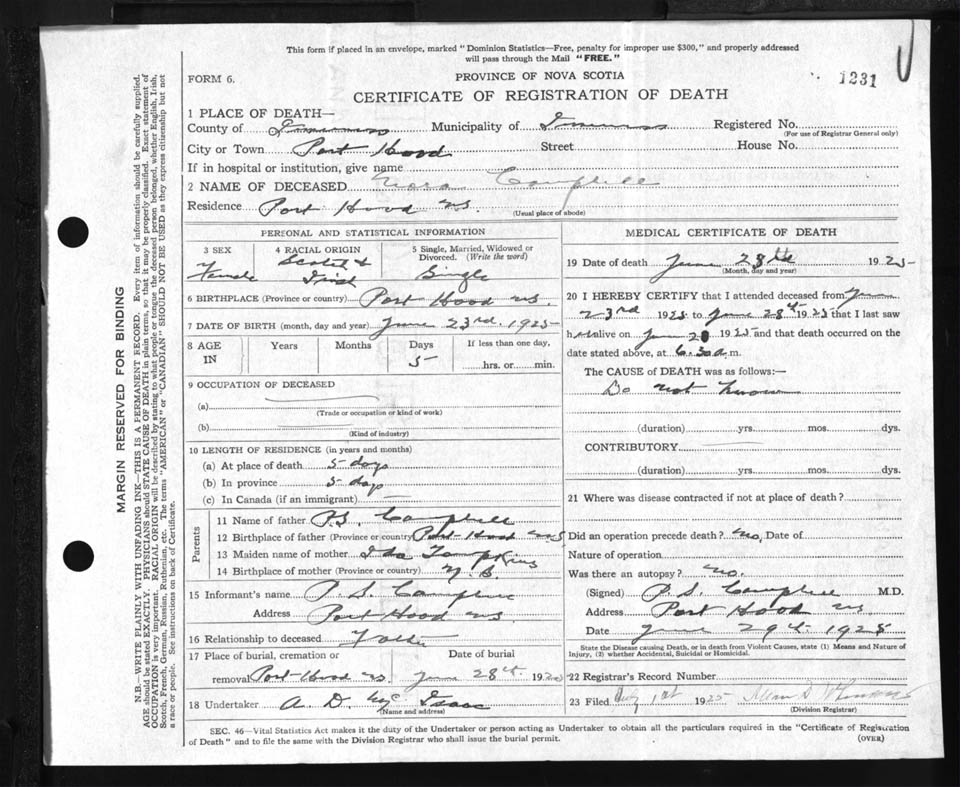 This form if placed in an envelope, marked "Dominion Statistics—Free, penalty for improper use $300," and properly addressed
will pass through the Mail "FREE."
FORM 6.
PROVINCE OF NOVA SCOTIA
1231
CERTIFICATE OF REGISTRATION OF DEATH
1 PLACE OF DEATH—
County of Inverness Municipality of Inverness Registered No.
(For use of Registrar General only)
City or Town Port Hood Street House No.
If in hospital or institution, give name
2 NAME OF DECEASED Campbell
Residence Port Hood N.S.
(Usual place of abode)
PERSONAL AND STATISTICAL INFORMATION
3 SEX Female
4 RACIAL ORIGIN Scotch & Irish
5 Single, Married, Widowed or Divorced. (Write the word) Single
6 BIRTHPLACE (Province or country) Port Hood N.S.
7 DATE OF BIRTH (month, day and year) June 23rd. 1925
8 AGE IN Years Months Days 5 If less than one day, hrs. or min.
9 OCCUPATION OF DECEASED
(a)
(Trade or occupation or kind of work)
(b)
(Kind of industry)
10 LENGTH OF RESIDENCE (in years and months)
(a) At place of death 5 days
(b) In province 5 days
(c) In Canada (if an immigrant) —
Parents
11 Name of father P.S. Campbell
12 Birthplace of father (Province or country) Port Hood N.S
13 Maiden name of mother Ida Tompkins
14 Birthplace of mother (Province or country) N.B.
15 Informant's name P. S. Campbell
Address Port Hood N.S
16 Relationship to deceased Father
17 Place of burial, cremation or Date of burial
removal Port Hood N.S. June 28th. 1925
18 Undertaker A. D. McIsaac
(Name and address)
MEDICAL CERTIFICATE OF DEATH
19 Date of death June 28th 1925
(Month, day and year)
20 I HEREBY CERTIFY that I attended deceased from June
23rd 1925 to June 28th 1925 that I last saw
h alive on June 28 1925 and that death occurred on the
date stated above, at 6.30 a.m.
The CAUSE of DEATH was as follows:—
Do not know
(duration) yrs. mos. dys.
CONTRIBUTORY.
(duration) yrs. mos. dys.
21 Where was disease contracted if not at place of death?
Did an operation precede death? No. Date of
Nature of operation
Was there an autopsy? No.
(Signed) P. S. Campbell M.D.
Address Port Hood N.S.
Date June 29th. 1925
State the Disease causing Death, or in death from Violent Causes, state (1) Means and Nature of
Injury, (2) whether Accidental, Suicidal or Homicidal.
22 Registrar's Record Number
23 Filed July 1st 1925
(Division Registrar)
SEC. 46—Vital Statistics Act makes it the duty of the Undertaker or person acting as Undertaker to obtain all the particulars required in the "Certificate of Registration
of Death" and to file the same with the Division Registrar who shall issue the burial permit.
(OVER)
MARGIN RESERVED FOR BINDING
N.B.—WRITE PLAINLY WITH UNFADING INK—THIS IS A PERMANENT RECORD. Every item of information should be carefully supplied.
AGE should be stated EXACTLY. PHYSICIANS should STATE CAUSE OF DEATH in plain terms, so that it may be properly classified. Exact statement of
OCCUPATION is very important. RACIAL ORIGIN will be described by stating to what people or tongue the deceased person belonged, whether English, Irish,
Scotch, French, German, Russian, Ruthenian, etc. The terms "AMERICAN" or "CANADIAN" SHOULD NOT BE USED as they express citizenship but not
a race or people. See instructions on back of Certificate.